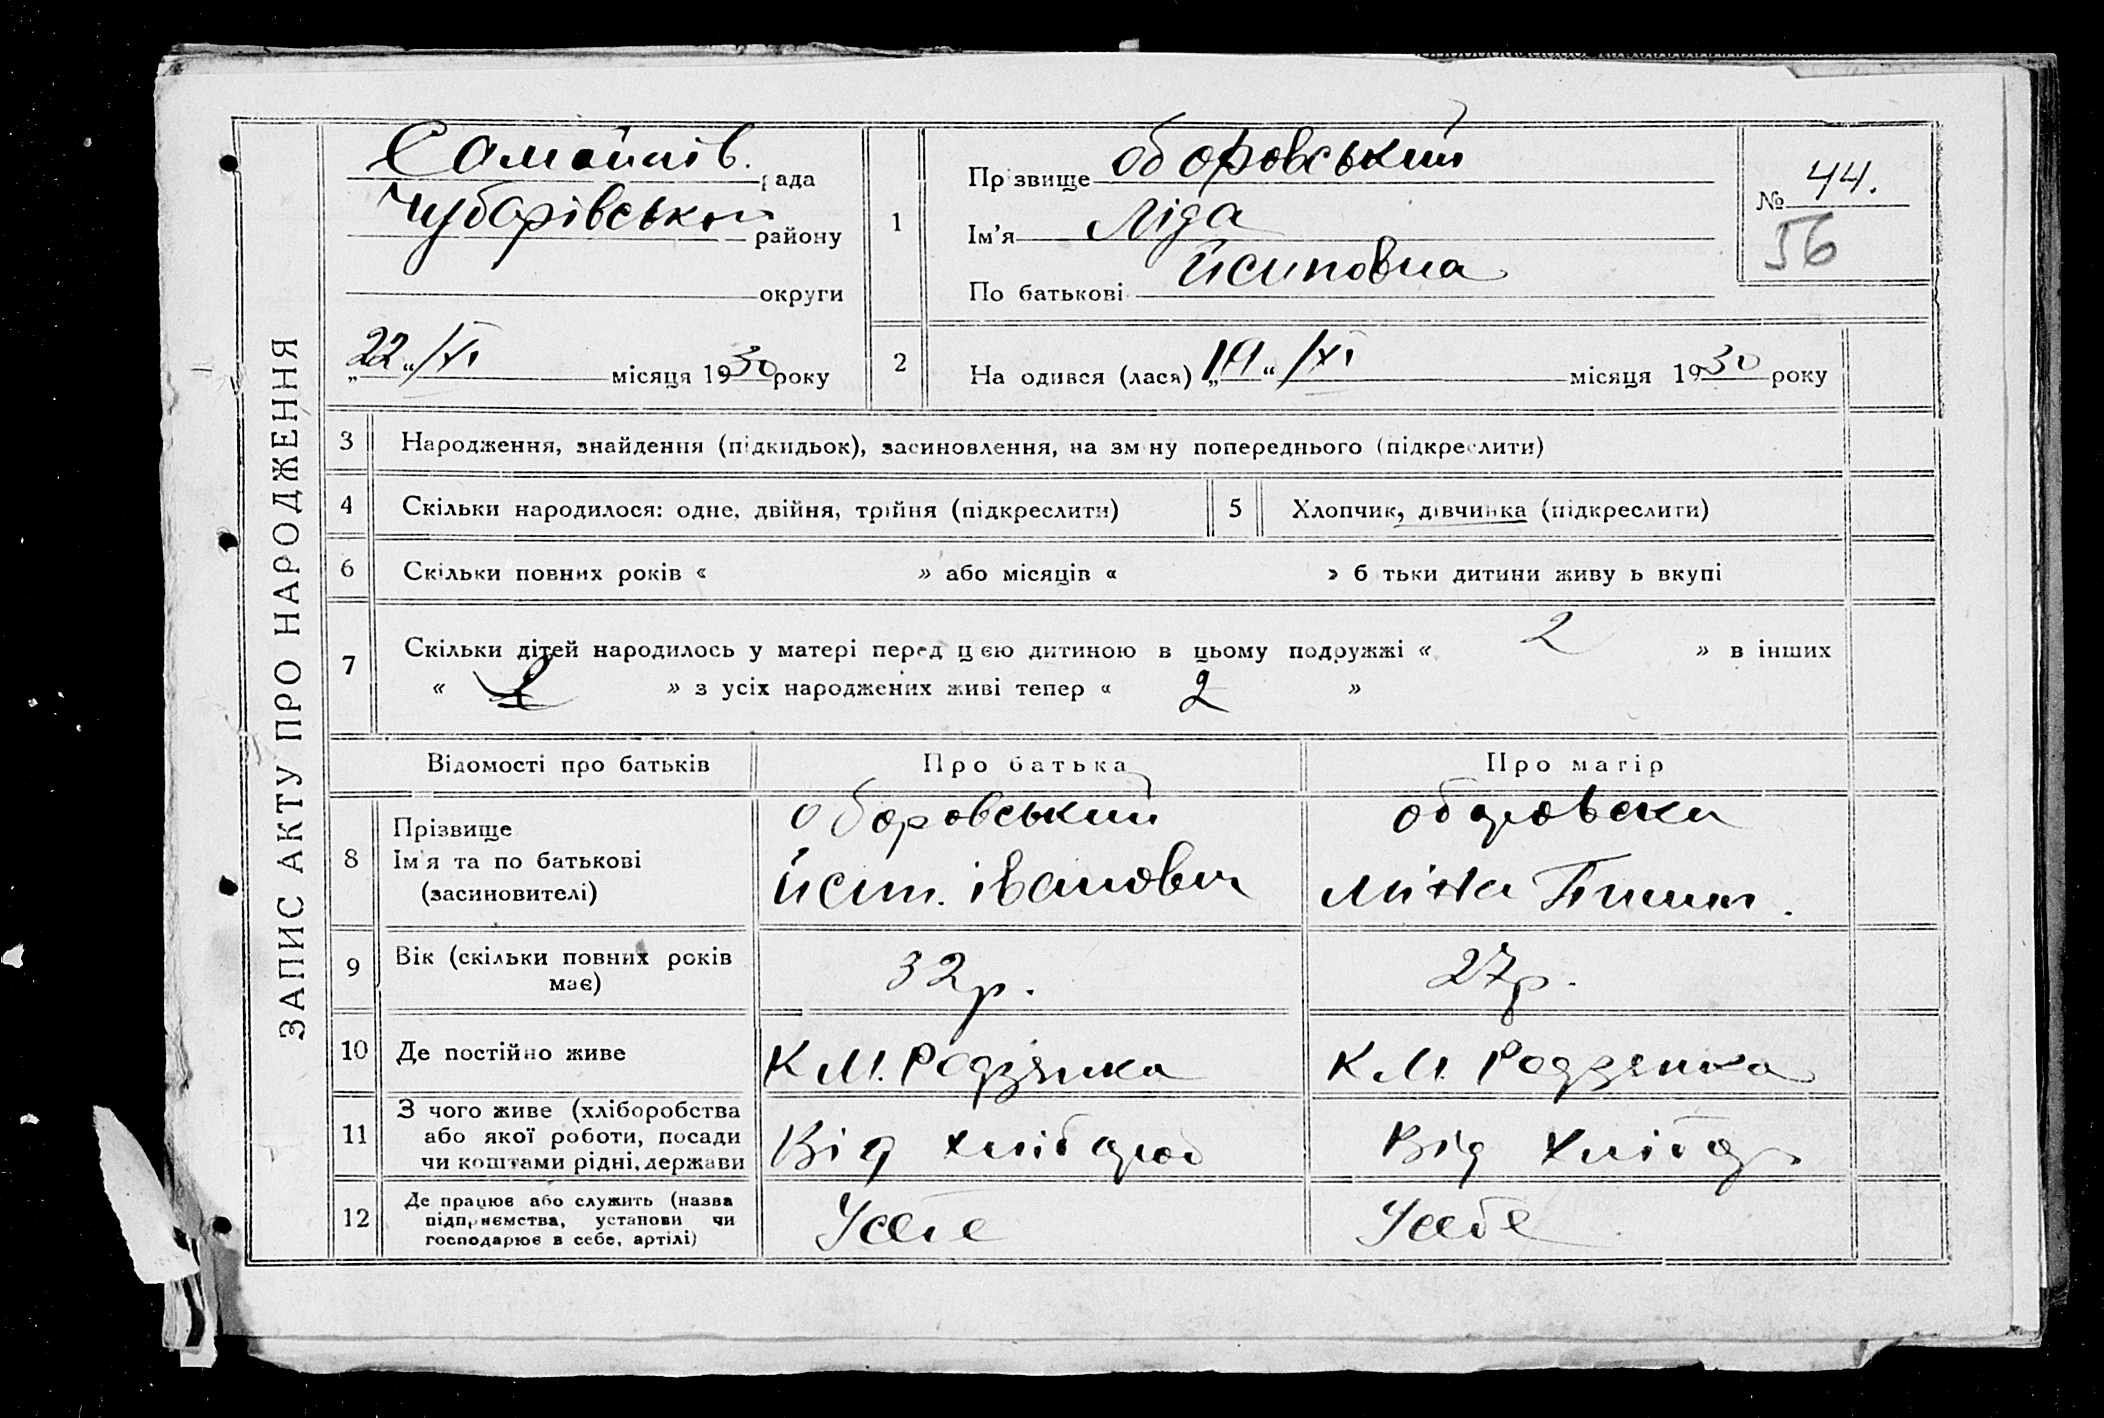 ЗАПИС АКТУ ПРО НАРОДЖЕННЯ
рада
Чубарівськ району
округи
„22“ /XI місяця 1930 року
1
Прізвище оборовський
Ім'я Ліда
По батькові йсиповна
№ 44.
56
2
На одився (лася) „19“ /XI місяця 1930 року
3 Народження, знайдення (підкидьок), засиновлення, на зм ну попереднього (підкреслити)
4 Скільки народилося: одне, двійня, трійня (підкреслити)
5 Хлопчик, дівчинка (підкреслити)
6 Скільки повних років « » або місяців « » б тьки дитини живу ь вкупі
7 Скільки дітей народилось у матері перед цією дитиною в цьому подружжі « 2 » в інших
« » з усіх народжених живі тепер « 2 »
Відомості про батьків Про батька Про матір
8 Прізвище
Ім'я та по батькові
(засиновителі)
оборовський
йсип. іванович
оборовска
9 Вік (скільки повних років має)
32р.
27р.
10 Де постійно живе
К М. Родзянка
К М. Родзянка
11 З чого живе (хліборобства
або якої роботи, посади
чи коштами рідні, держави
Від хлібороб
Від хлібор
12 Де працює або служить (назва
підприємства, установи чи
господарює в себе, артілі)
Усебе
Усебе